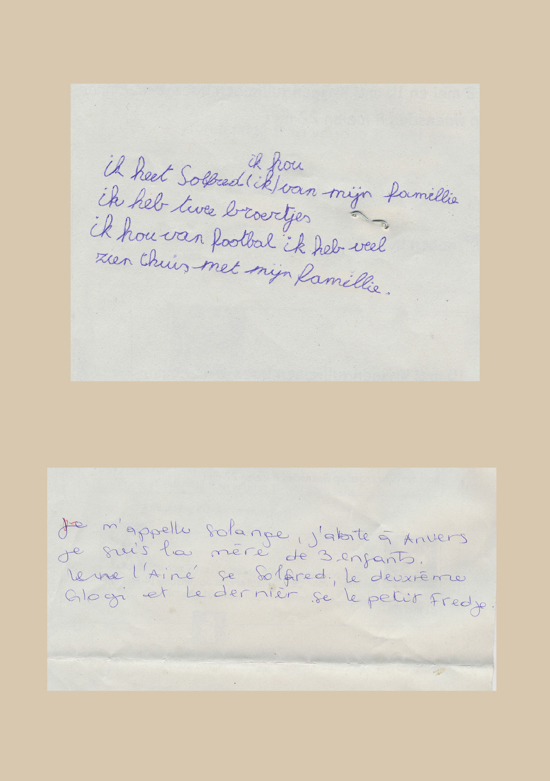 ik hou
ik heet Solfred (ik) van mijn famillie
ik heb twee broertjes
ik hou van footbal ik heb veel
zien thuis met mijn famillie.
Je m'appelle Solange, j'abite à Anvers
je suis la mère de 3 enfants.
l'Ainé se Solfred, le deuxième
Glogi et le dernièr se le petit Fredje.